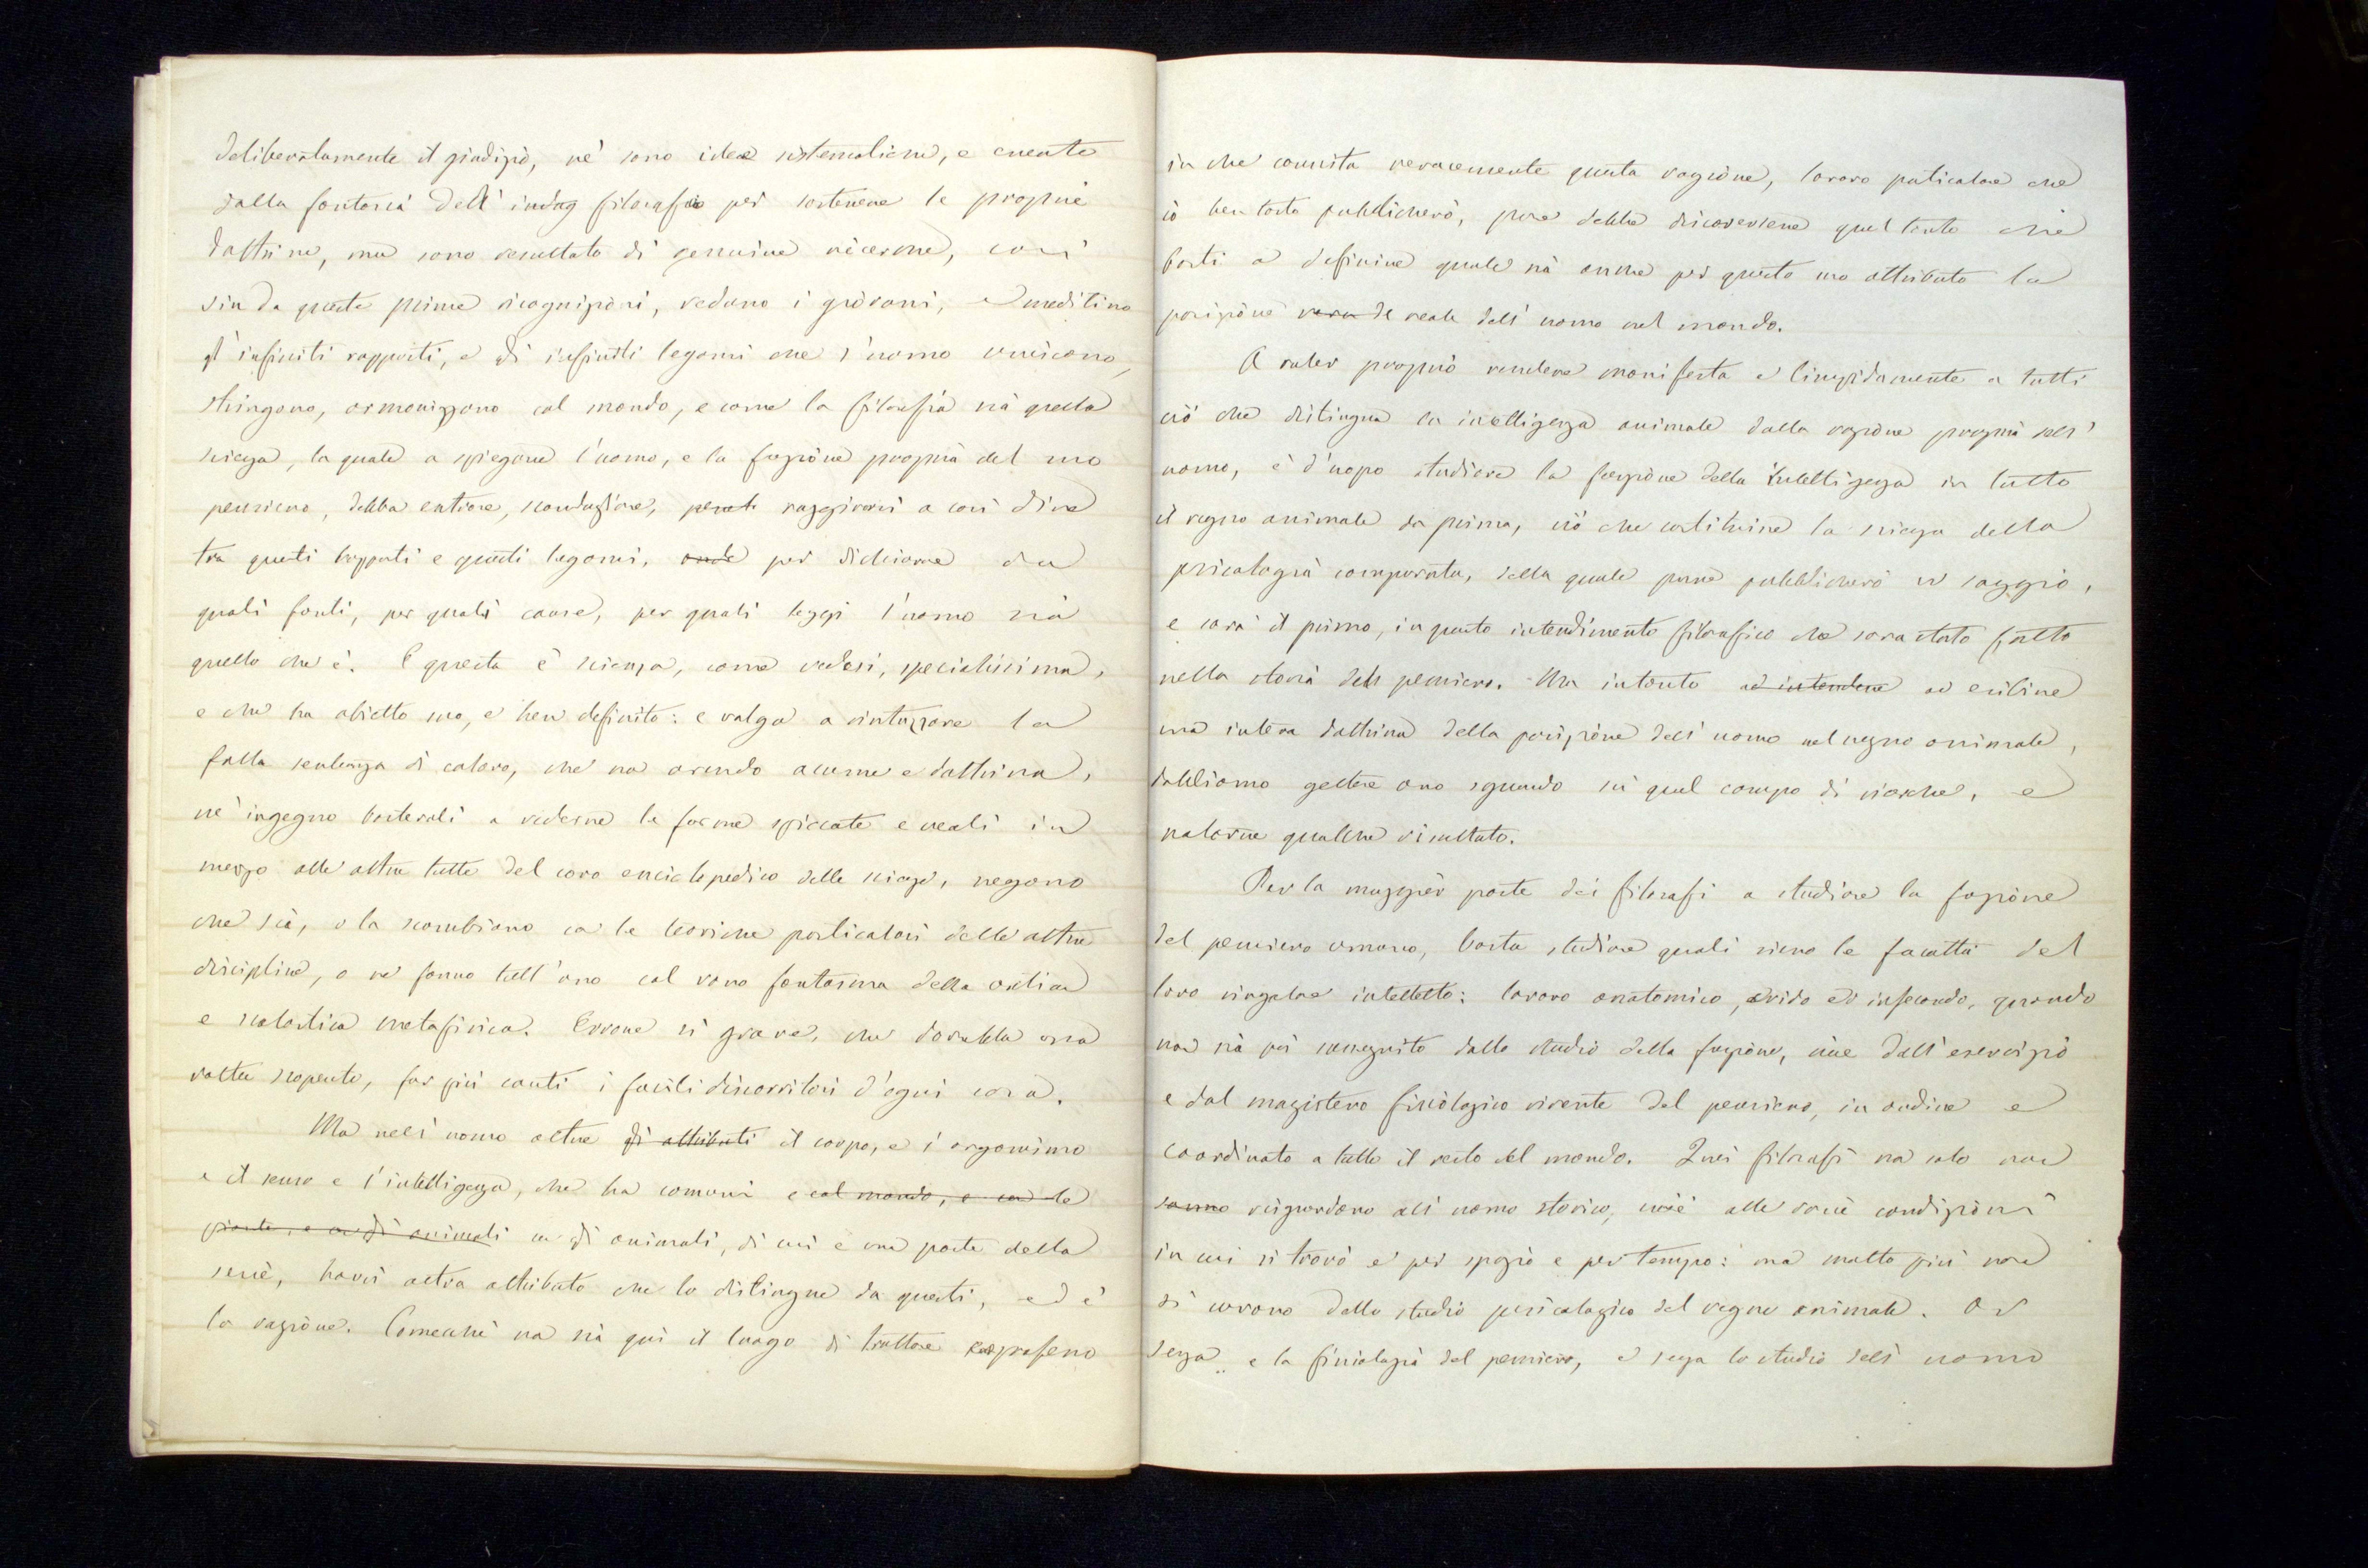 deliberatamente il giudizio, nè sono idee sistematiche, e create
dalla fantasia dell' filosofo per sostenere le proprie
dottrine, ma sono resultato di genuine ricerche, così
sin da queste prime ricognizioni, vedano i giovani, e meditino
gl' infiniti rapporti, e gl' infiniti legami che l'uomo uniscono,
stringono, armonizzano col mondo, e come la filosofia sia quella
scienza, la quale a spiegare l'uomo, e la funzione propria del suo
pensiero, debba entrare, raggirarsi a così dire
tra questi rapporti e questi legami, onde per dichiarare da
quali fonti, per quali cause, per quali leggi l'uomo sia
quello che è. E questa è scienza, come vedesi, specialissima,
e che ha obietto suo, e ben definito: e valga a rintuzzare la
falsa sentenza di coloro, che no avendo acume e dottrina,
nè ingegno bastevoli a vederne le forme spiccate e reali in
mezzo alle altre tutte del coro enciclopedico delle scienze, negano
che sia, o la scambiano co le teoriche particolari delle altre
discipline, o ne fanno tutt'uno col vano fantasma della antica
e scolastica metafisica. Errore sì grave, che dovrebbe una
volta scoperto, far più cauti i facili discorritori d'ogni cosa.
Ma nell'uomo oltre gli attributi il corpo, e l'organismo
e il senso e l'intelligenza, che ha comuni e col mondo, e con le
piante, e co gli animali co gli animali, di cui è una parte della
serie, havvi altro attributo che lo distingue da questi, ed è
la ragione. Comecchè no sia qui il luogo di trattare
in che consista veracemente questa ragione, lavoro particolare che
io ben tosto pubblicherò, pure debbo discorrerne quel tanto che
basti a definire quale sia anche per questo suo attributo la
posizione vera de reale dell'uomo nel mondo.
A voler proprio rendere manifesta e limpidamente a tutti
ciò che distingue la intelligenza animale dalla ragione propria dell'
uomo, è d'uopo studiare la funzione della intelligenza in tutto
il regno animale da prima, ciò che costituisce la scienza della
psicologia comparata, della quale pure pubblicherò un saggio,
e sarà il primo, in questo intendimento filosofico che sara stato fatto
nella storia del pensiero. Ma intanto ad intendere ad esibire
una intera dottrina della posizione dell'uomo nel regno animale,
dobbiamo gettare uno sguardo su quel campo di ricerche, e
notarne qualche risultato.
Per la maggior parte dei filosofi a studiare la funzione
del pensiero umano, basta studiare quali sieno le facoltà del
loro singolare intelletto: lavoro anatomico, arido ed infecondo, quando
non sia poi conseguito dallo studio della funzione, cioè dall'esercizio
e dal magistero fisiologico vivente del pensiero, in ordine e
coordinato a tutto il resto del mondo. Quei filosofi no solo non
sanno risguardano all'uomo storico, cioè alle varie condizioni
in cui si trovò e per spazio e per tempo: ma molto più non
si curano dello studio psicologico del regno animale. Or
senza e la fisiologia del pensiero, e senza lo studio dell'uomo